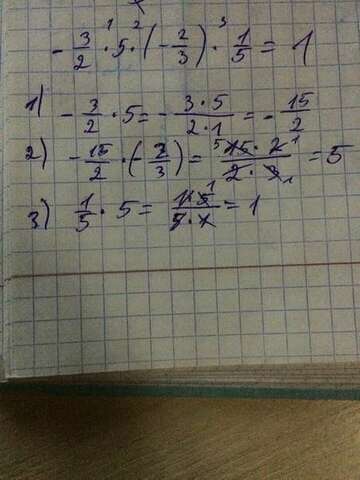 -3/2 ·¹ 5 ·² (-2/3) ·³ 1/5 = 1
1) -3/2 · 5 = - 3·5/2·1 = - 15/2
2) - 15/2 · (-2/3) = 5 15·2 1/2·3 1 = 5
3) 1/5 · 5 = 1·5 1/5·1 = 1